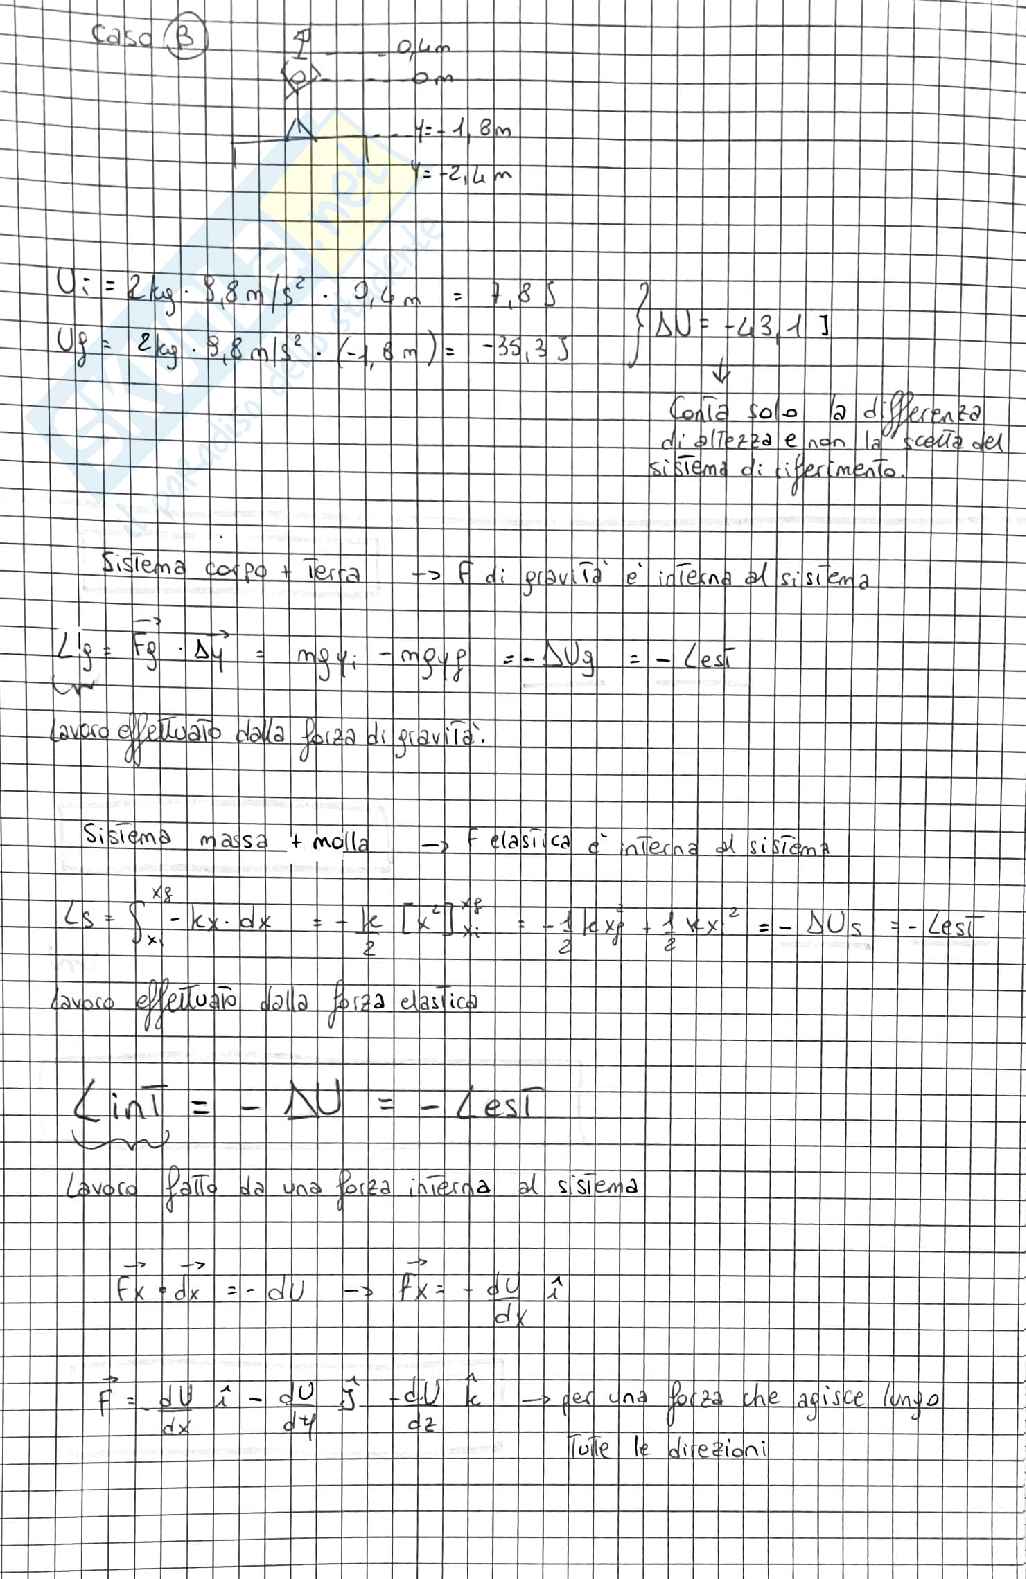 Caso B
0,4m
0m
Y=-1,8m
Y=-2,4m
Ui = 2kg · 9,8m/s² · 0,4m = 7,8J
Uf = 2kg · 9,8m/s² · (-1,8m) = -35,3J
ΔU = -43,1 J
↓
Conta solo la differenza
di altezza e non la scelta del
sistema di riferimento.
Sistema corpo + Terra → F di gravità è interna al sistema
Lg = Fg · Δy = mgyi - mgyf = -ΔUg = -Lest
Lavoro effettuato dalla forza di gravità.
Sistema massa + molla → F elastica è interna al sistema
Ls = ∫xi^xf -kx·dx = -k/2 [x²]xi^xf = -1/2 kxf² + 1/2 kxi² = -ΔUs = -Lest
Lavoro effettuato dalla forza elastica
Lint = -ΔU = -Lest
Lavoro fatto da una forza interna al sistema
Fx · dx = -dU → Fx = -dU/dx î
F = -dU/dx î - dU/dy ĵ - dU/dz k̂ → per una forza che agisce lungo
Tutte le direzioni